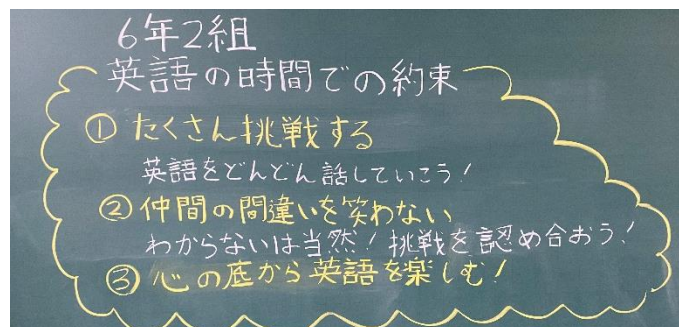 6年2組
英語の時間での約束
① たくさん挑戦する
英語をどんどん話していこう!
② 仲間の間違いを笑わない
わからないは当然!挑戦を認め合おう!
③ 心の底から英語を楽しむ!